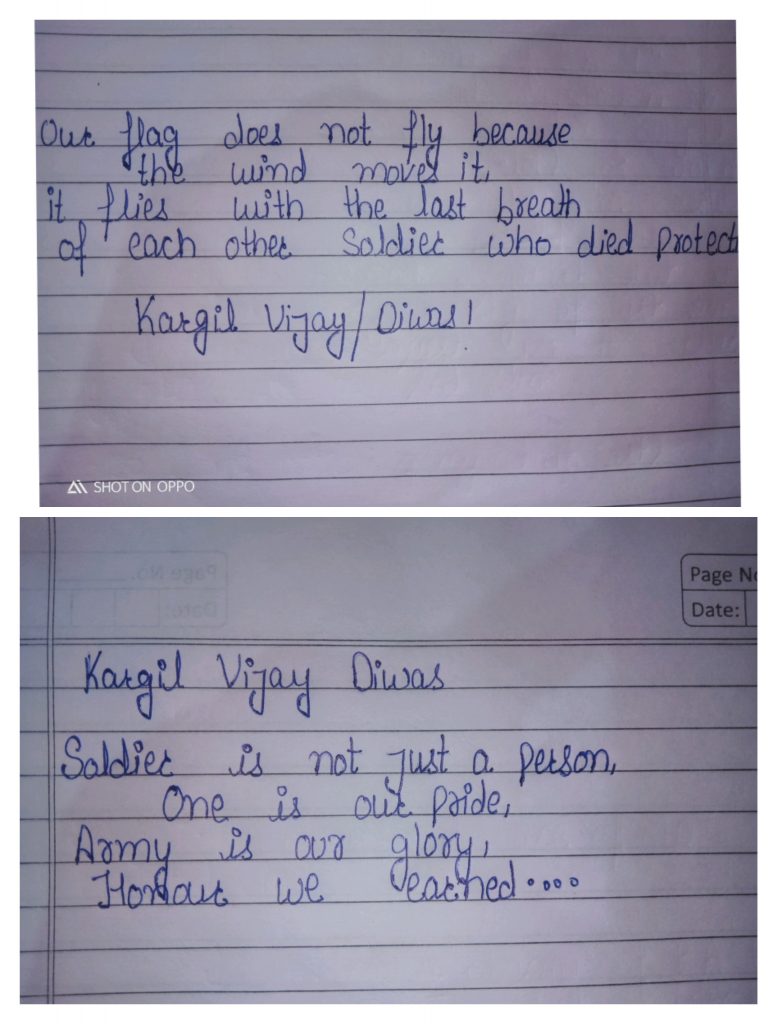 Our flag does not fly because
the wind moves it,
it flies with the last breath
of each other Soldier who died protect
Kargil Vijay/Diwas!
SHOT ON OPPO
Page No.
Page No
Date:
Date:
Kargil Vijay Diwas
Soldier is not just a person,
One is our pride,
Army is our glory,
Honour we earned....